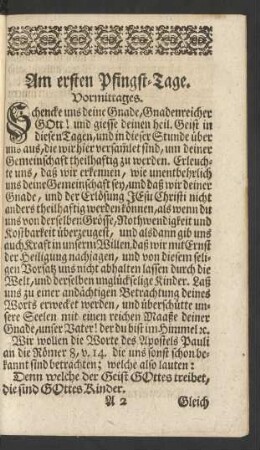 Am ersten Pfingst-Tage.
Vormittages.
Schencke uns deine Gnade, Gnadenreicher
GOtt! und giesse deinen heil. Geist in
diesen Tagen, und in dieser Stunde über
uns aus, die wir hier versamlet sind, um deiner
Gemeinschaft theilhaftig zu werden. Erleuch-
te uns, daß wir erkennen, wie unentbehrlich
uns deine Gemeinschaft sey, und daß wir deiner
Gnade, und der Erlösung JEsu Christi nicht
anders theilhaftig werden können, als wenn du
uns von derselben Grösse, Nothwendigkeit und
Kostbarkeit überzeugest, und alsdann gib uns
auch Kraft in unserm Willen, daß wir mit Ernst
der Heiligung nachjagen, und von diesem seli-
gen Vorsatz uns nicht abhalten lassen durch die
Welt, und derselben unglückselige Kinder. Laß
uns zu einer andächtigen Betrachtung deines
Worts erwecket werden, und überschütte un-
sere Seelen mit einen reichen Maaße deiner
Gnade, unser Vater! der du bist im Himmel ꝛc.
Wir wollen die Worte des Apostels Pauli
an die Römer 8, v. 14. die uns sonst schon be-
kannt sind betrachten; welche also lauten:
Denn welche der Geist GOttes treibet,
die sind GOttes Kinder.
A 2 Gleich